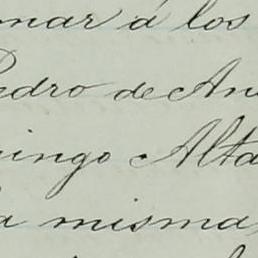 mar á los
Pedro de An
ingo Alta
a misma